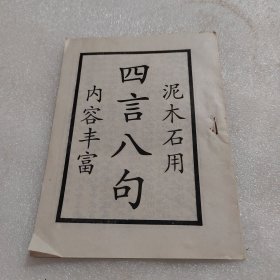 泥木石用
四言八句
内容丰富